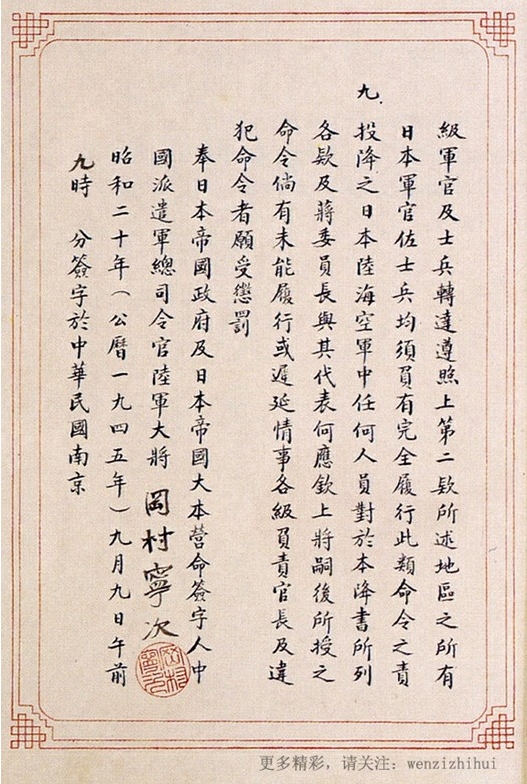 級軍官及士兵轉達遵照上第二款所述地區之所有
日本軍官佐士兵均須負有完全履行此類命令之責
九.
投降之日本陸海空軍中任何人員對於本降書所列
各款及蔣委員長與其代表何應欽上將嗣後所授之
命令倘有未能履行或遲延情事各級負責官長及違
犯命令者願受懲罰
奉日本帝國政府及日本帝國大本營命簽字人中
國派遣軍總司令官陸軍大將 岡村寧次
昭和二十年(公曆一九四五年)九月九日午前
九時 分簽字於中華民國南京
岡村寧次
更多精彩，请关注：wenzizhihui